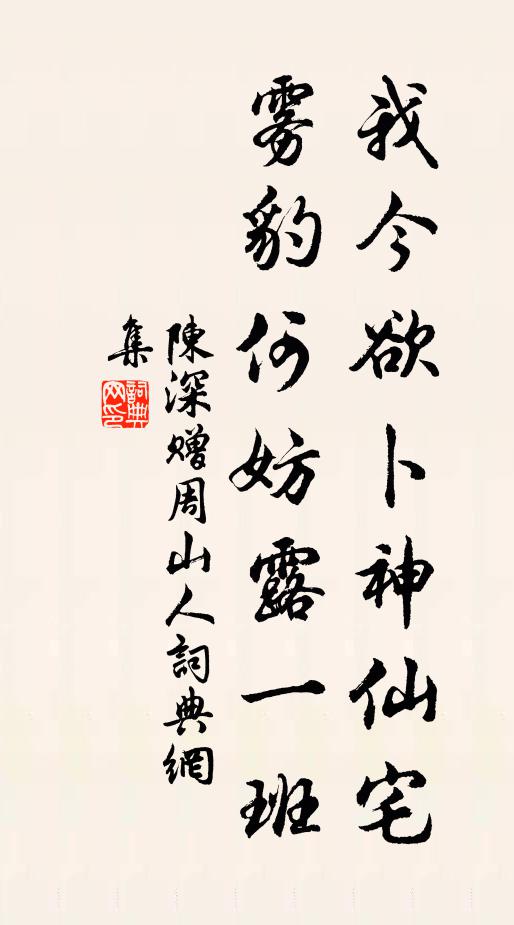 我今欲卜神仙宅
雾豹何妨露一班
陳深赠周山人詞典網
集
詞典网印